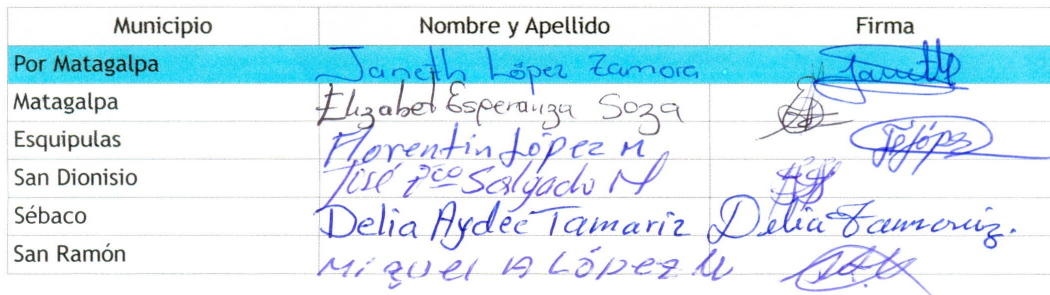 Municipio Nombre y Apellido Firma
Por Matagalpa Janeth López Zamora Janeth
Matagalpa Elizabet Esperanza Soza
Esquipulas Florentin López M Flópez
San Dionisio José Fco Salgado M
Sébaco Delia Aydeé Tamariz Delia Tamariz.
San Ramón Miguel A López M